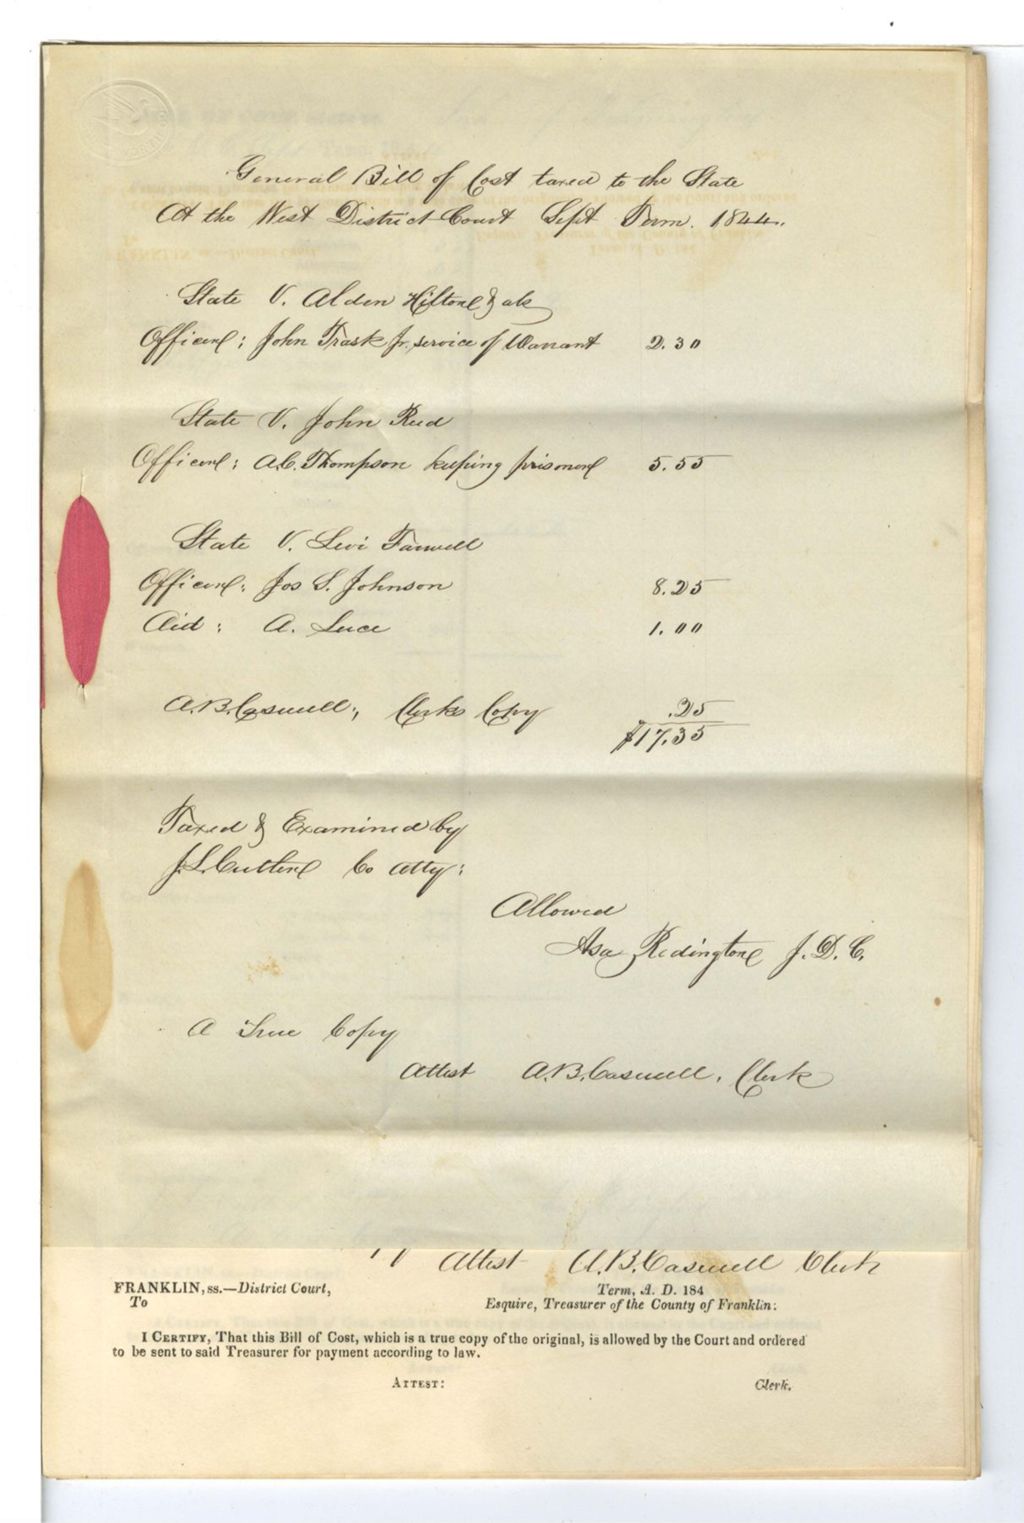 General Bill of Cost taxed to the State
At the West District Court Sept Term. 1844.
State V. Alden Hilton & als
Officer; John Trask Jr. service of Warrant 2.30
State V. John Reed
Officer; A.C. Thompson keeping prisoner 5.55
State V. Levi Farwell
Officer; Jos S. Johnson 8.25
Aid; A. Luce 1.00
A.B. Caswell; Clerks Copy .25
$17.35
Taxed & Examined by
J.L. Cutler Co Atty:
Allowed
Asa Redington J.D.C.
A True Copy
Attest A.B. Caswell, Clerk
Attest A.B. Caswell Clerk
FRANKLIN, ss.—District Court, Term, A. D. 184
To Esquire, Treasurer of the County of Franklin:
I CERTIFY, That this Bill of Cost, which is a true copy of the original, is allowed by the Court and ordered
to be sent to said Treasurer for payment according to law.
ATTEST: Clerk.